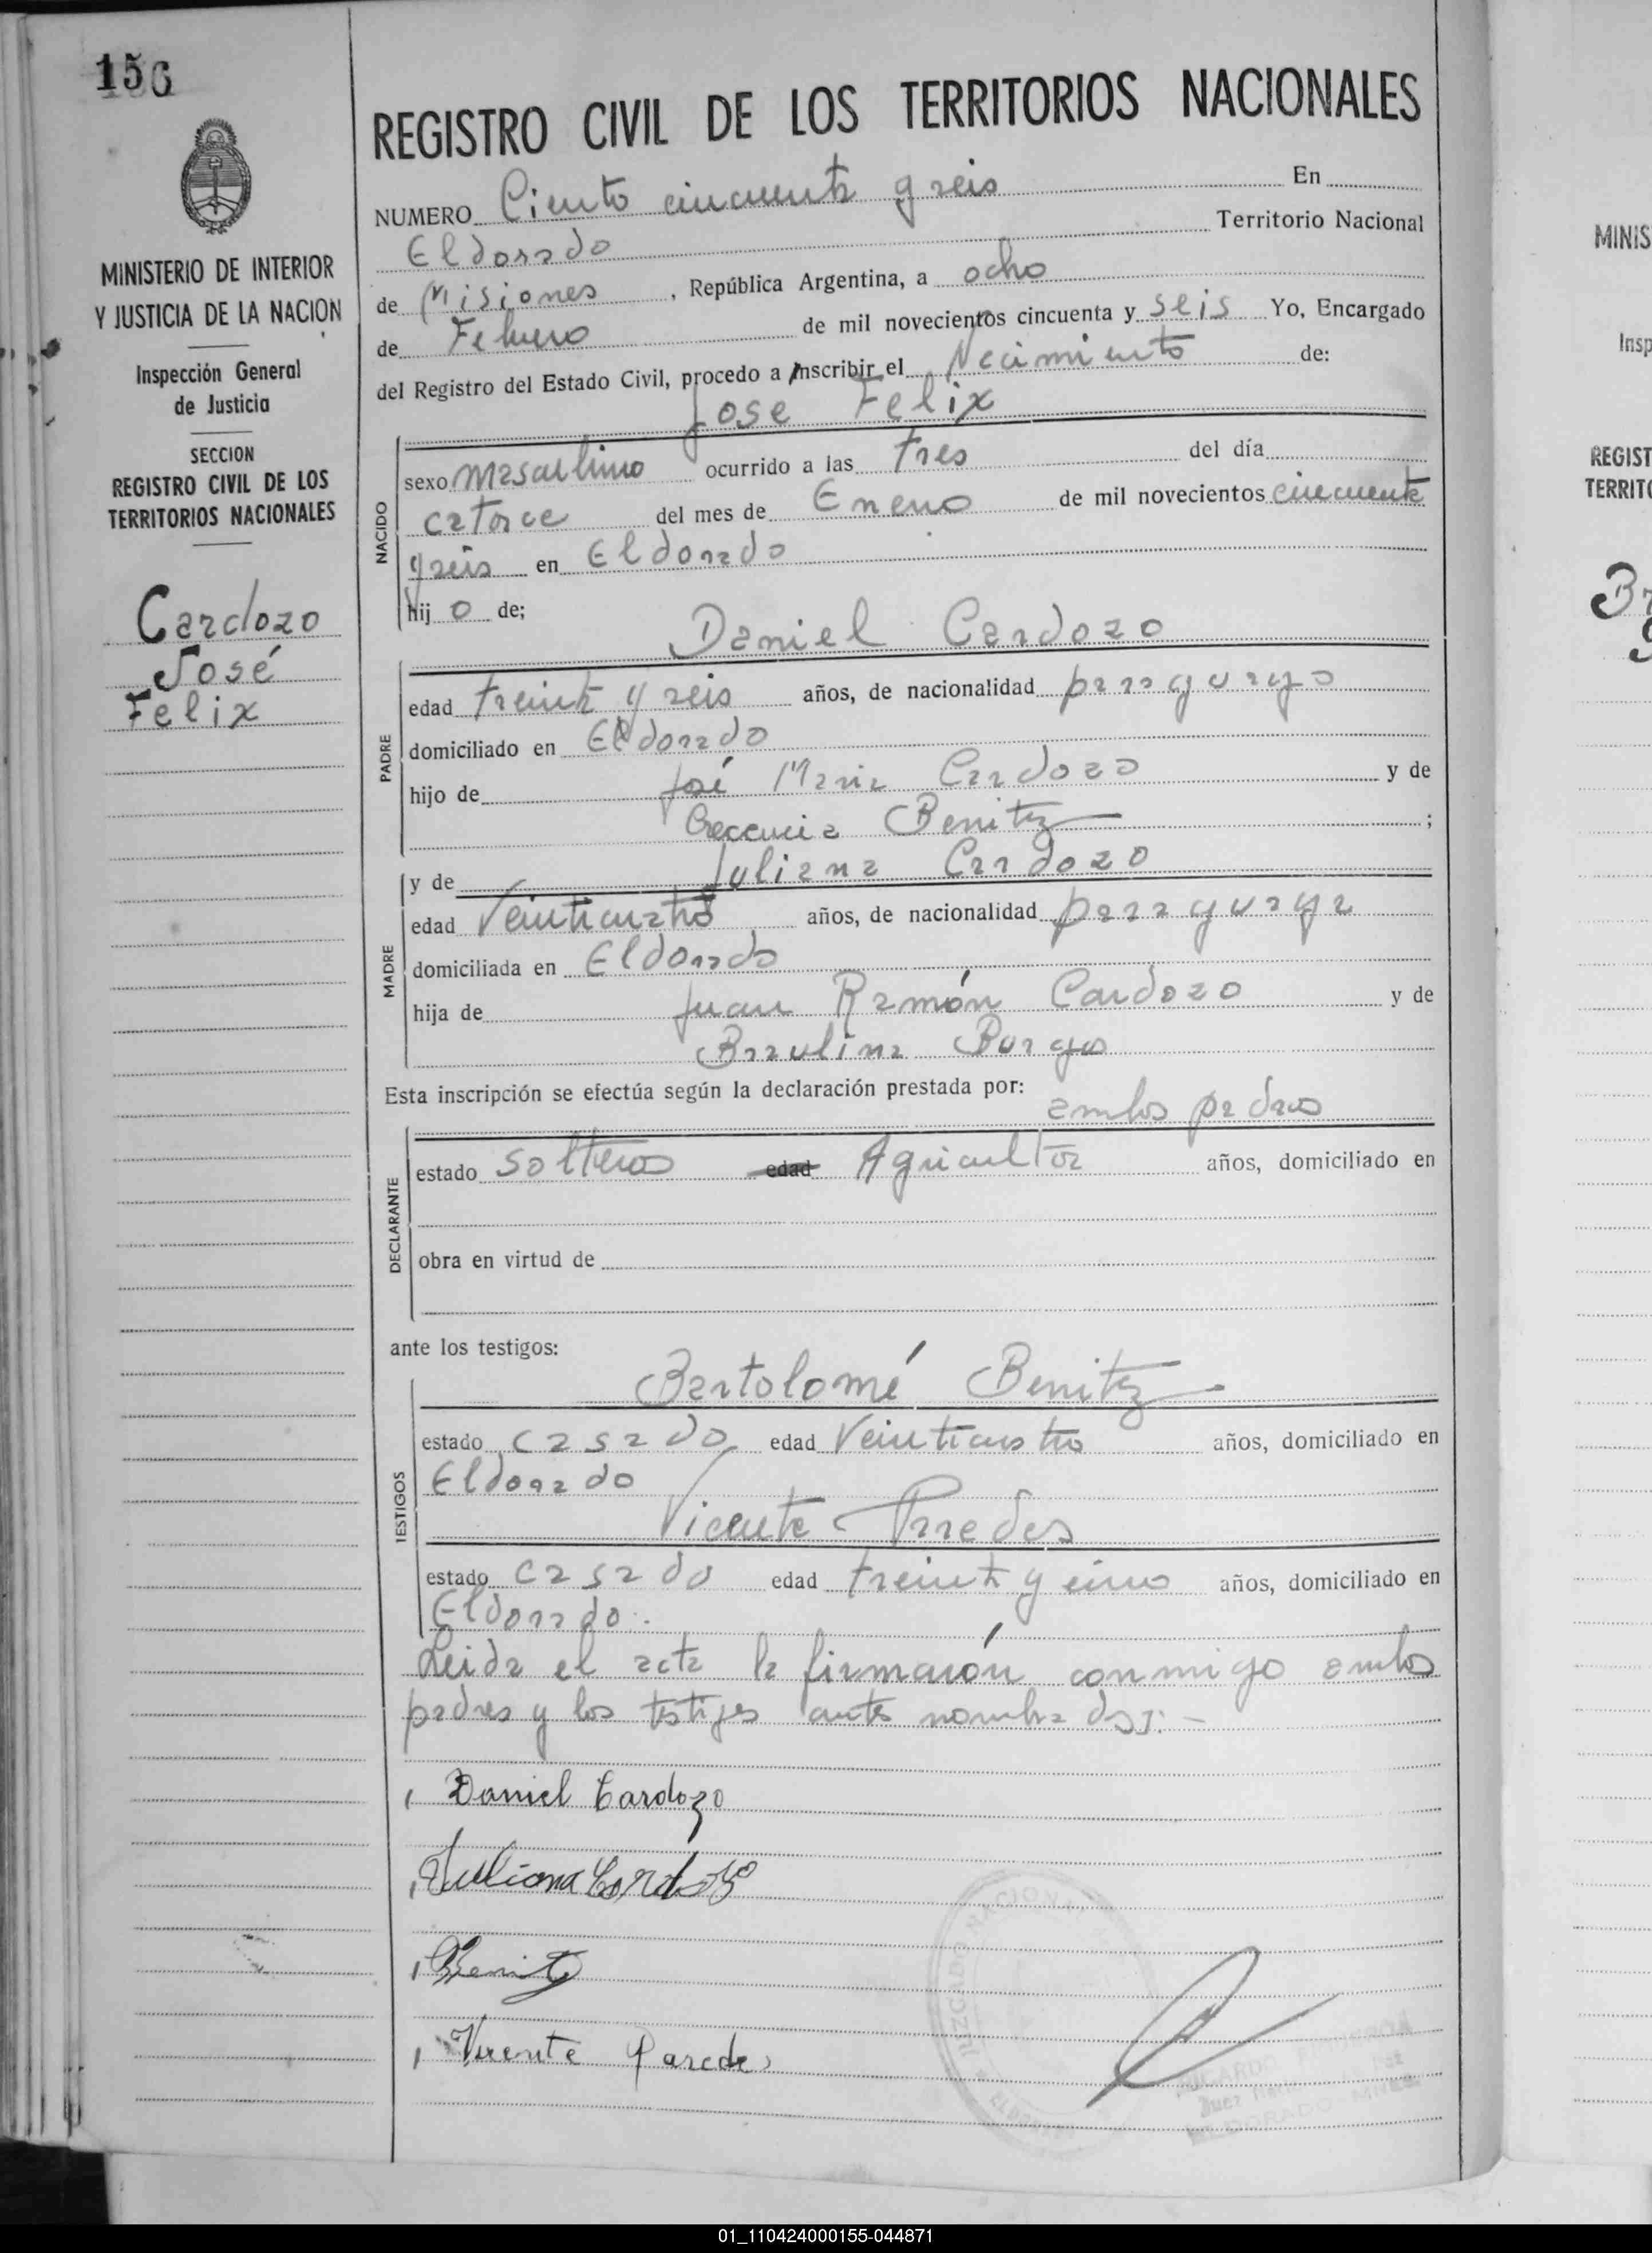 156
MINISTERIO DE INTERIOR
Y JUSTICIA DE LA NACION
Inspección General
de Justicia
SECCION
REGISTRO CIVIL DE LOS
TERRITORIOS NACIONALES
Cardozo
José
Felix
REGISTRO CIVIL DE LOS TERRITORIOS NACIONALES
NUMERO Ciento cincuenta y seis En
Eldorado Territorio Nacional
de Misiones, República Argentina, a ocho
de Febrero de mil novecientos cincuenta y seis Yo, Encargado
del Registro del Estado Civil, procedo a inscribir el Nacimiento de:
Jose Felix
NACIDO
sexo masculino ocurrido a las tres del día
catorce del mes de Enero de mil novecientos cincuenta
y seis en Eldorado
hijo de;
Daniel Cardozo
PADRE
edad treinta y seis años, de nacionalidad paraguayo
domiciliado en Eldorado
hijo de José Maria Cardozo y de
Benitez ;
y de Juliana Cardozo
MADRE
edad Veinticuatro años, de nacionalidad paraguaya
domiciliada en Eldorado
hija de Juan Ramón Cardozo y de
Braulina Borges
Esta inscripción se efectúa según la declaración prestada por:
ambos padres
DECLARANTE
estado solteros edad Agricultor años, domiciliado en
obra en virtud de
ante los testigos:
Bartolomé Benitez
TESTIGOS
estado casado edad Veinticuatro años, domiciliado en
Eldorado
Vicente Paredes
estado casado edad treinta y cinco años, domiciliado en
Eldorado.
Leida el acta la firmarón conmigo ambos
padres y los testigos antes nombrados:-
Daniel Cardozo
Juliana Cardozo
Benitez
Vicente Paredes
MINIS
Insp
REGIST
TERRIT
01_110424000155-044871